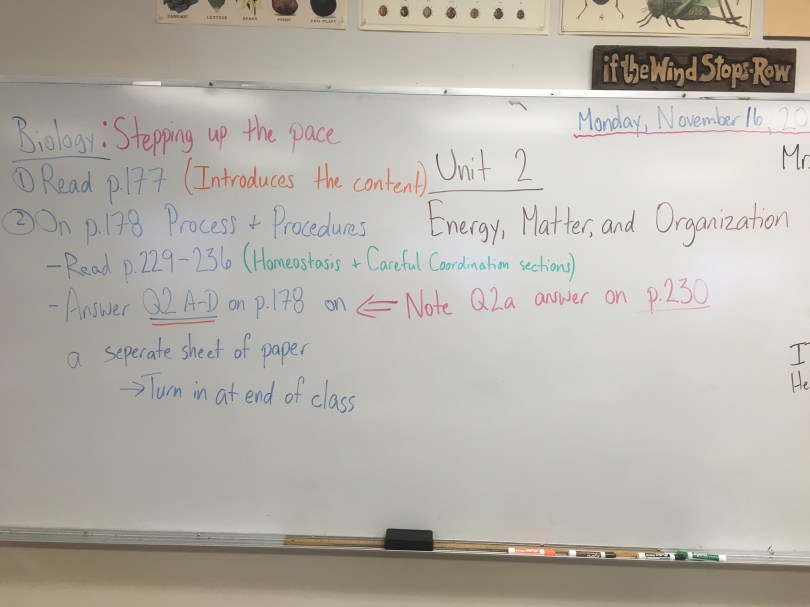 if the Wind Stops·Row
Monday, November 16, 20
Biology: Stepping up the pace
Mr.
① Read p.177 (Introduces the content)
Unit 2
Energy, Matter, and Organization
② On p.178 Process + Procedures
- Read p.229-236 (Homeostasis + Careful Coordination sections)
- Answer Q2 A-D on p.178 on ⇐ Note Q2a answer on p.230
a seperate sheet of paper
→ Turn in at end of class
He